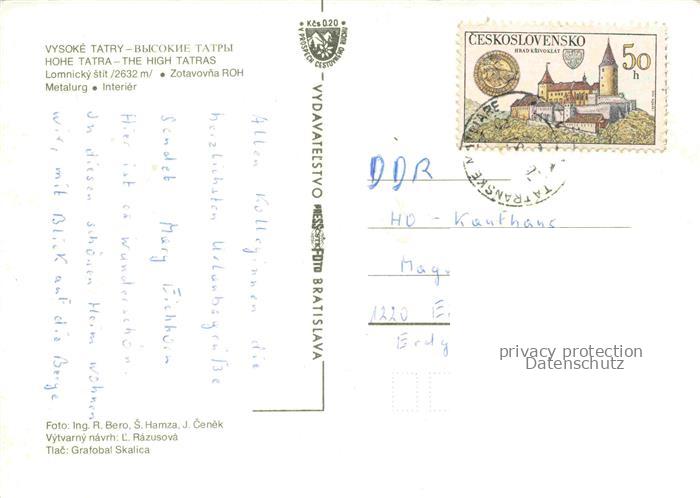 VYSOKÉ TATRY – ВЫСОКИЕ ТАТРЫ
HOHE TATRA – THE HIGH TATRAS
Lomnický štít /2632 m/ ● Zotavovňa ROH
Metalurg ● Interiér
Allen Kolleginnen die
herzlichsten Urlaubsgrüße
sendet Mary Eichhorn
Hier ist es wunderschön.
In diesen schönen Heim wohnen
wir, mit Blick auf die Berge.
Foto: Ing. R. Bero, Š. Hamza, J. Čeněk
Výtvarný návrh: Ľ. Rázusová
Tlač: Grafobal Skalica
Kčs 0.20
V PROSPECH CESTOVNÉHO RUCHU
VYDAVATEĽSTVO PRESSFOTO BRATISLAVA
ČESKOSLOVENSKO
HRAD KŘIVOKLÁT
50
h
TATRANSKÉ MATLIARE
DDR
HO - Kaufhaus
Mag
1220 Ei
Erdy
privacy protection
Datenschutz